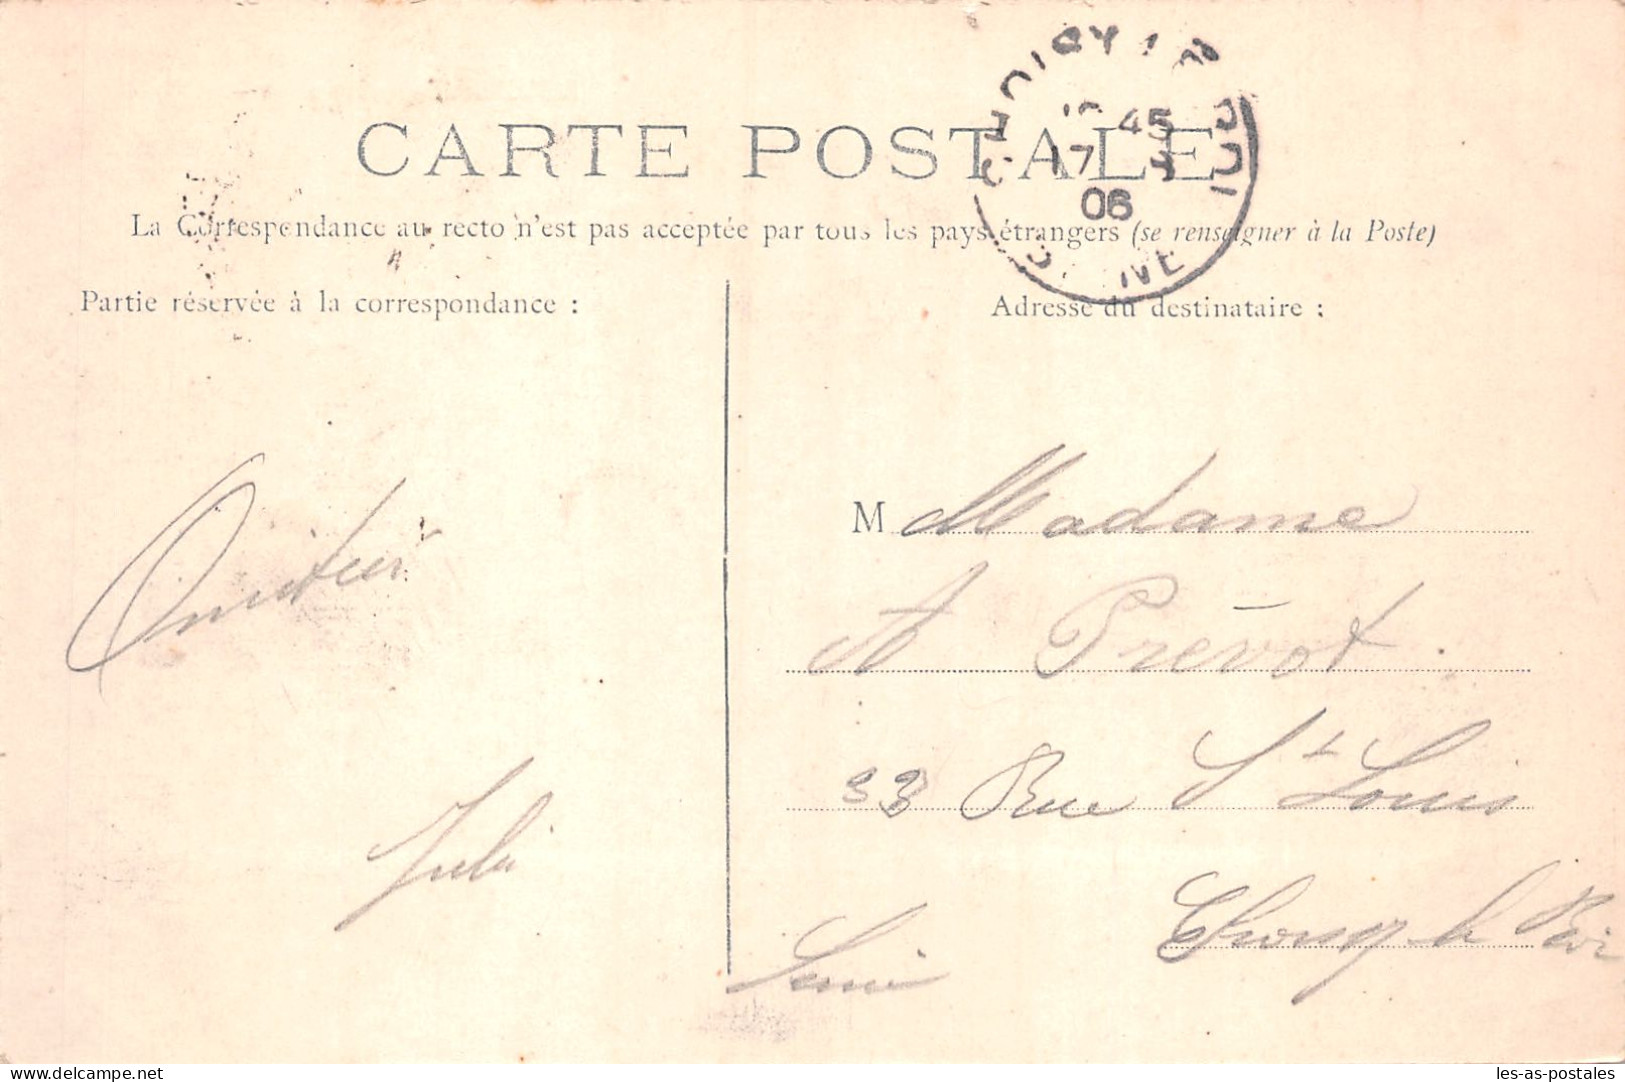 CARTE POSTALE
45
17
06
La Correspondance au recto n'est pas acceptée par tous les pays étrangers (se renseigner à la Poste)
Partie réservée à la correspondance :
Adresse du destinataire :
M Madame
A Prévot
33 Rue St Louis
Choisy le Roi
Seine
delcampe.net
les-as-postales